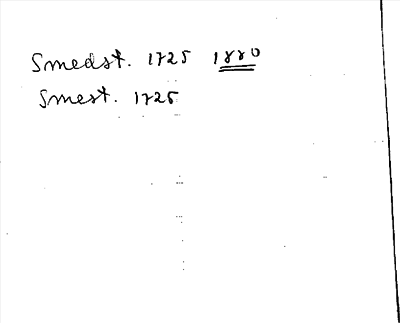 Smedst. 1725 1880
Smest. 1725